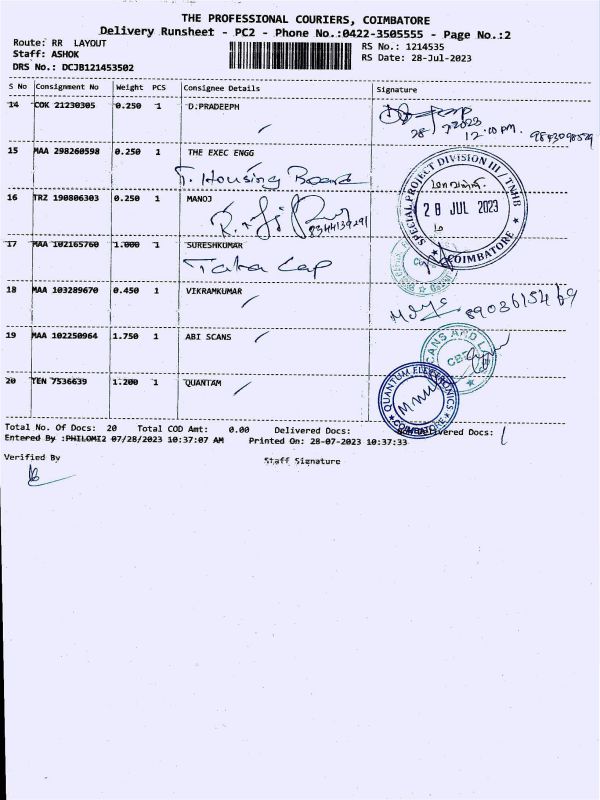 THE PROFESSIONAL COURIERS, COIMBATORE
Delivery Runsheet - PC2 - Phone No.:0422-3505555 - Page No.:2
Route: RR LAYOUT
Staff: ASHOK
DRS No.: DCJB121453502
RS No.: 1214535
RS Date: 28-Jul-2023
S No Consignment No Weight PCS Consignee Details Signature
14 COK 21230305 0.250 1 D.PRADEEPH
28/7/2023
12.00 pm.
15 MAA 298260598 0.250 1 THE EXEC ENGG
T. Housing Board
SPECIAL PROJECT DIVISION III / TNHB
28 JUL 2023
COIMBATORE
16 TRZ 190806303 0.250 1 MANOJ
17 MAA 102165760 1.000 1 SURESHKUMAR
Tata Cap
18 MAA 103289670 0.450 1 VIKRAMKUMAR
19 MAA 102250964 1.750 1 ABI SCANS
SCANS AND LA
CBE
20 TEN 7536639 1.200 1 QUANTAM
QUANTUM ELECTRONICS
COIMBATORE
Total No. Of Docs: 20 Total COD Amt: 0.00 Delivered Docs: livered Docs:
Entered By :PHILOMI2 07/28/2023 10:37:07 AM Printed On: 28-07-2023 10:37:33
Verified By Staff Signature